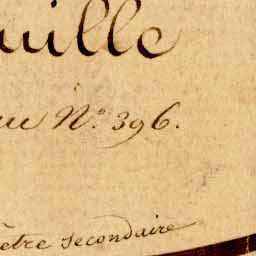 uille
ue N.o 396.
être secondaire